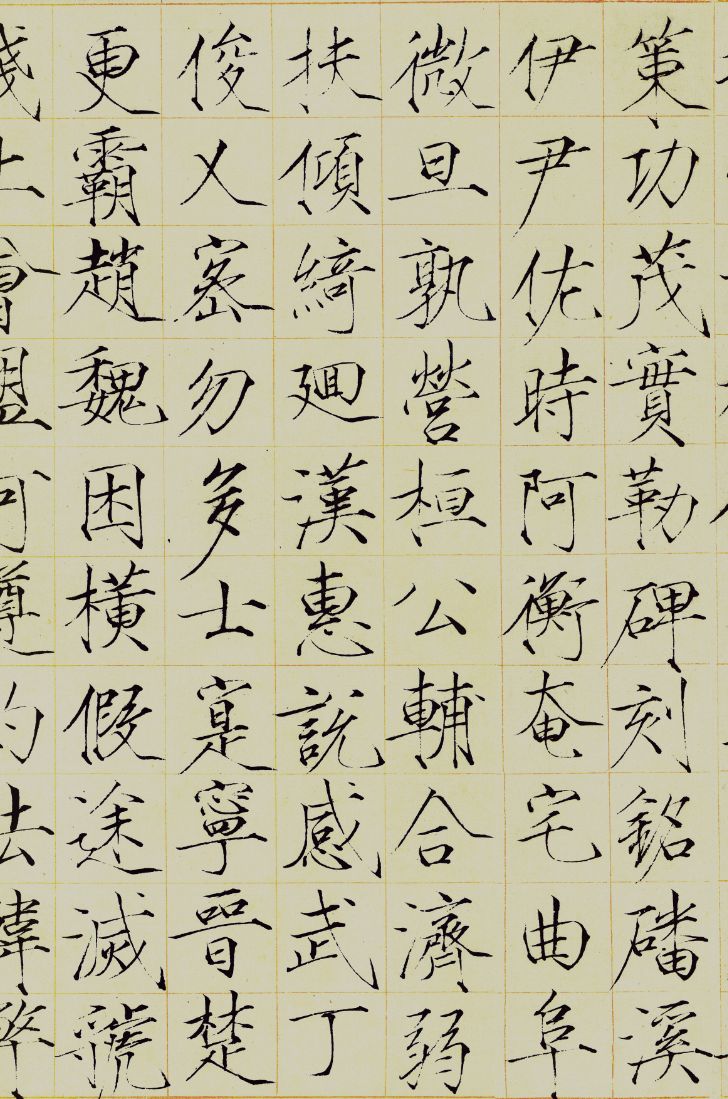 策功茂實勒碑刻銘磻溪
伊尹佐時阿衡奄宅曲阜
微旦孰營桓公輔合濟弱
扶傾綺廻漢惠說感武丁
俊乂密勿多士寔寧晉楚
更霸趙魏困橫假途滅虢